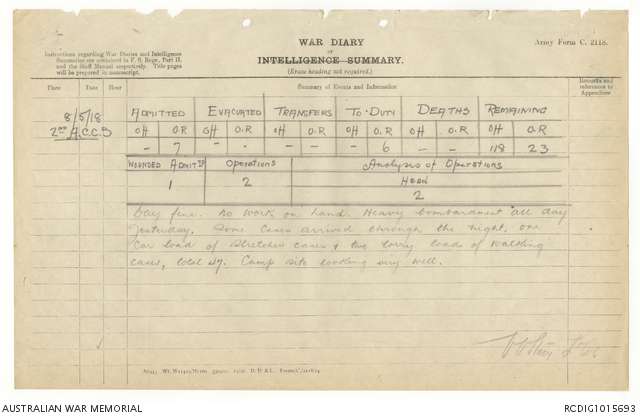 WAR DIARY
or
INTELLIGENCE SUMMARY.
(Erase heading not required.)
Army Form C. 2118.
Instructions regarding War Diaries and Intelligence
Summaries are contained in F. S. Regs., Part II.
and the Staff Manual respectively. Title pages
will be prepared in manuscript.
Place Date Hour Summary of Events and Information Remarks and
references to
Appendices
8/5/18 ADMITTED EVACUATED TRANSFERS TO DUTY DEATHS REMAINING
2nd A.C.C.S Off O.R Off O.R Off O.R. Off O.R. Off O.R. Off O.R
- 7 - - - - - 6 - - 118 23
WOUNDED ADMIT'D Operations Analysis of Operations
1 2
2
Day fine. No work on hand. Heavy bombardment all day
yesterday. Some cases arrived through the night, one
car load of stretcher cases & two lorry loads of walking
cases, total 47. Camp site looking very well.
AUSTRALIAN WAR MEMORIAL
RCDIG1015693